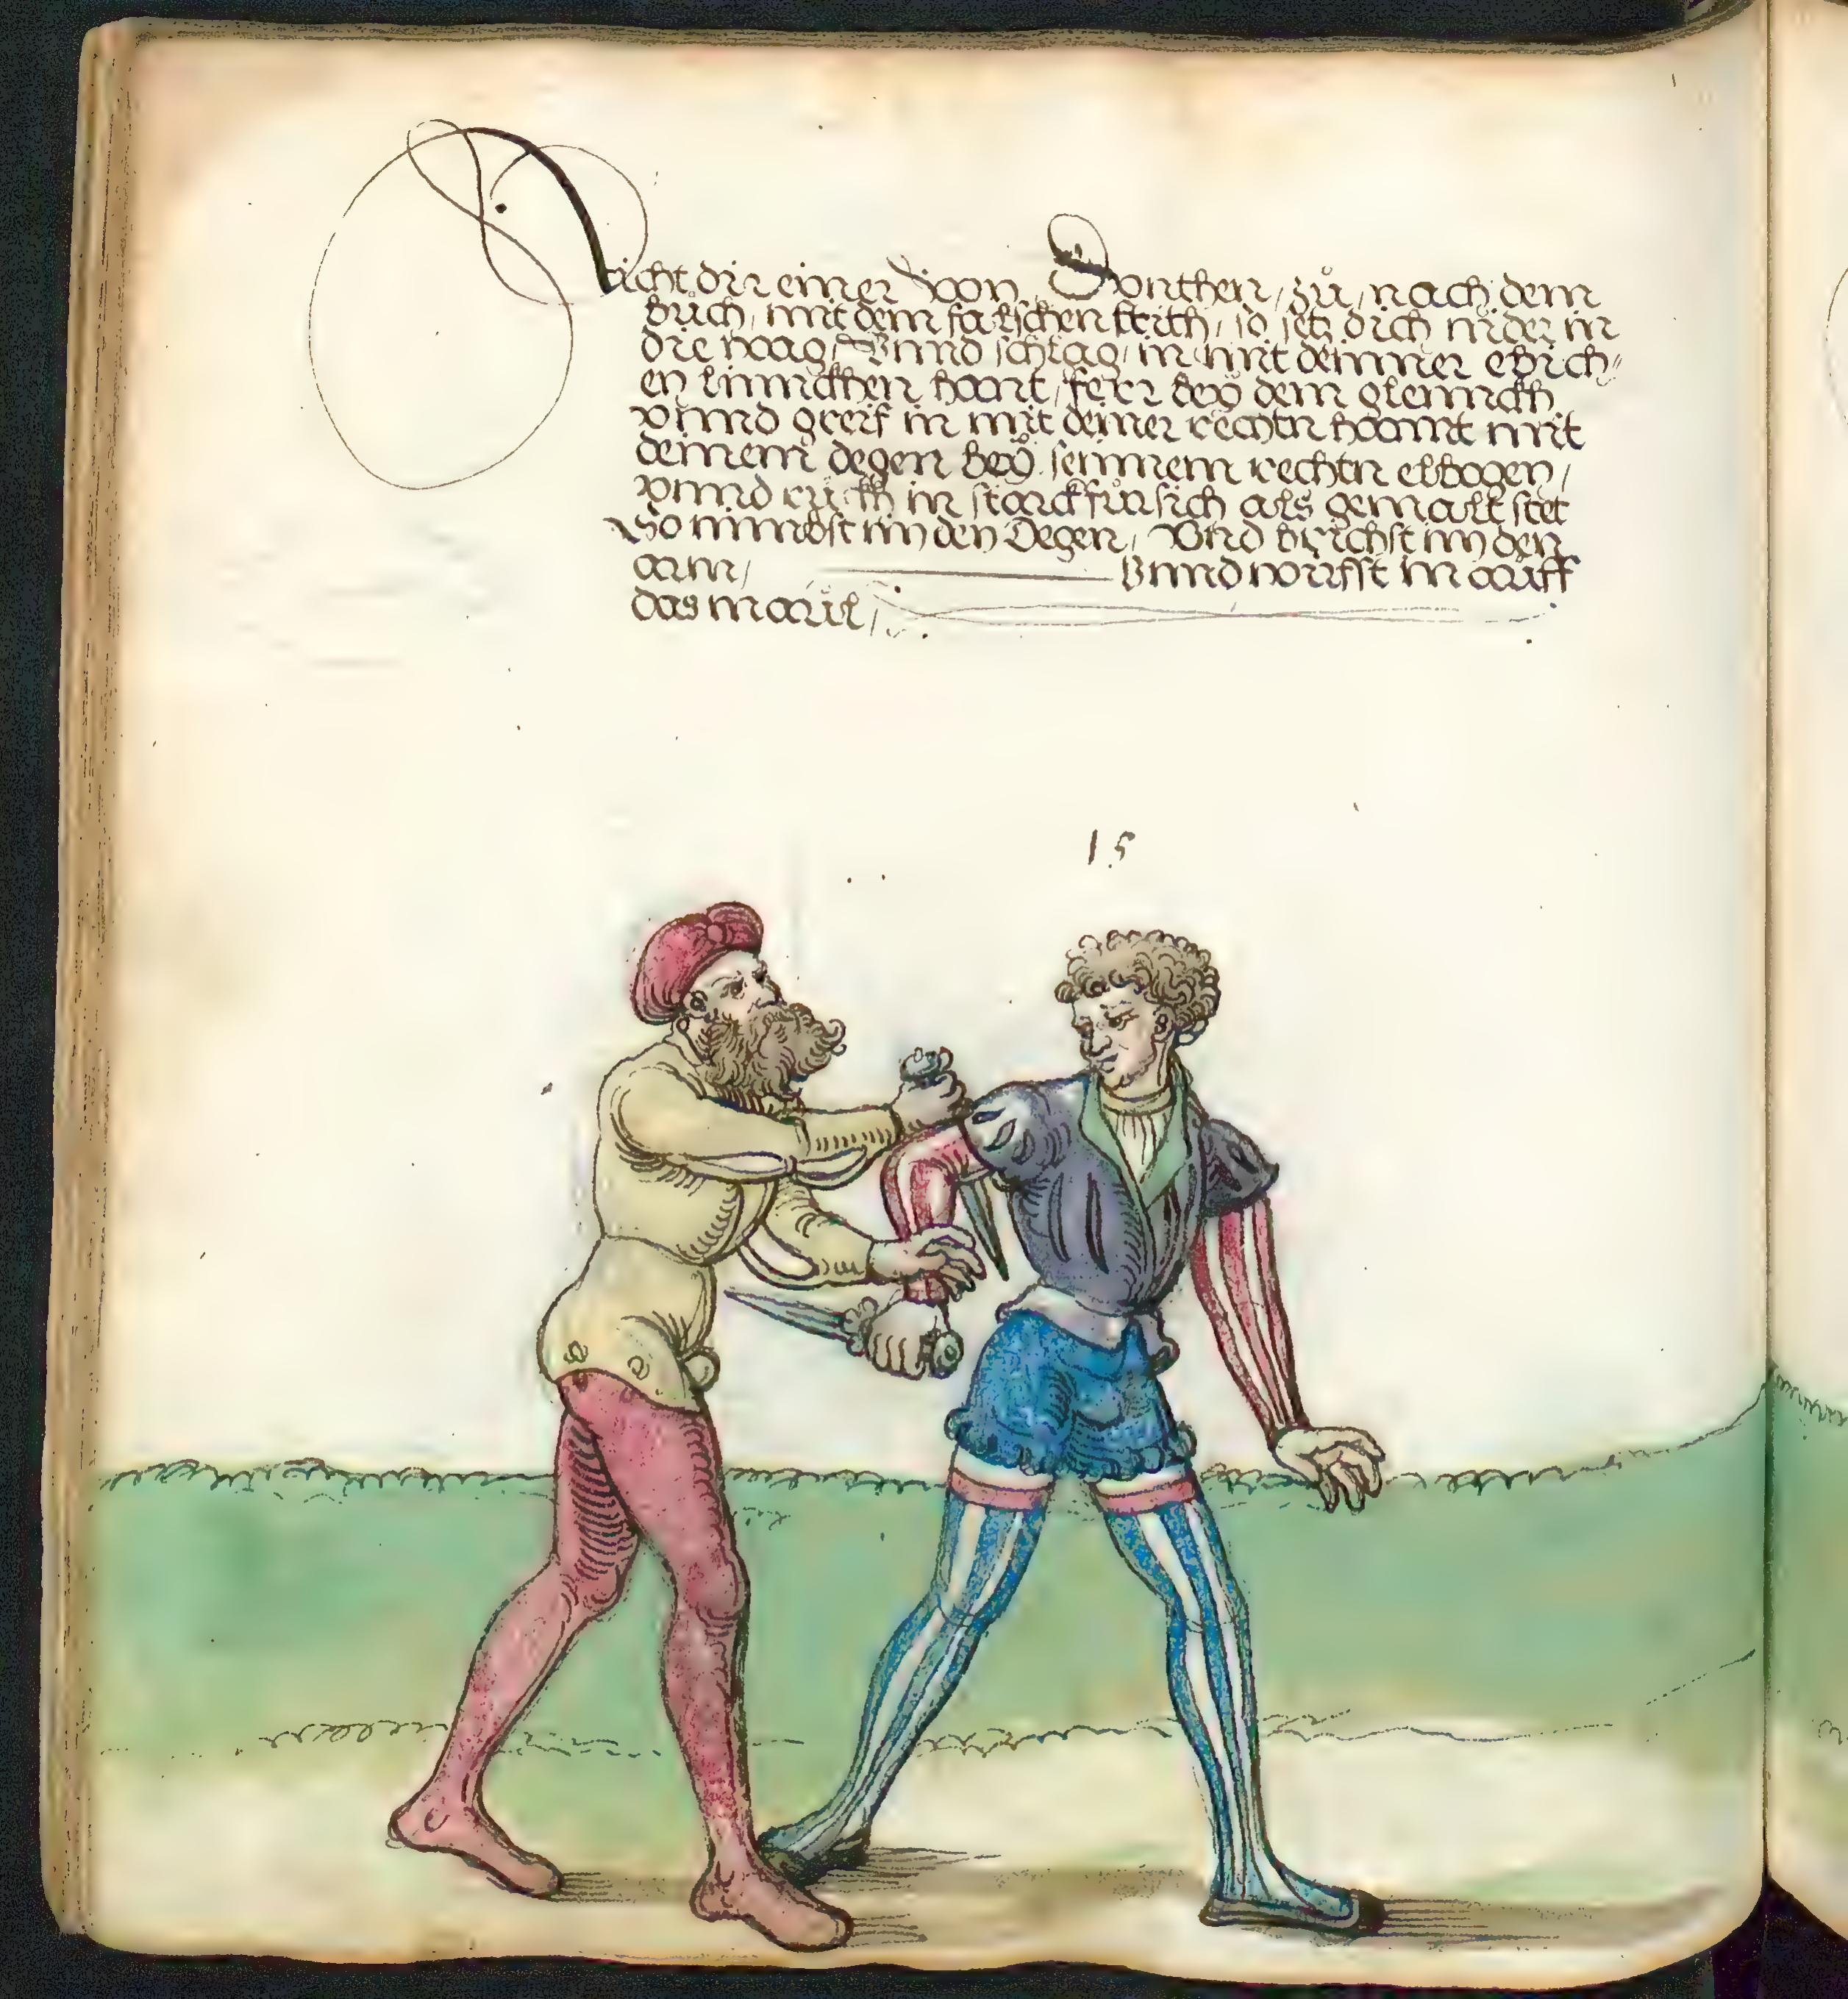 Sticht dir einer Von Vnnthen, zů, nach dem
bůch, mit dem falschen stich, so setz dich nider in
die waag, Vnnd schlag, in mit deinner ebich=
en linnckhen hant, ferr beÿ dem glennckh
vnnd greif in mit deiner rechtn hannt mit
deinem degen beÿ sennem rechtn elbogen,
vnnd rückh in starck für sich als gemalt stet
So nimbst im den Degen, Vnd brichst im den
arm, Vnnd wirfst in auff
das maul,
15